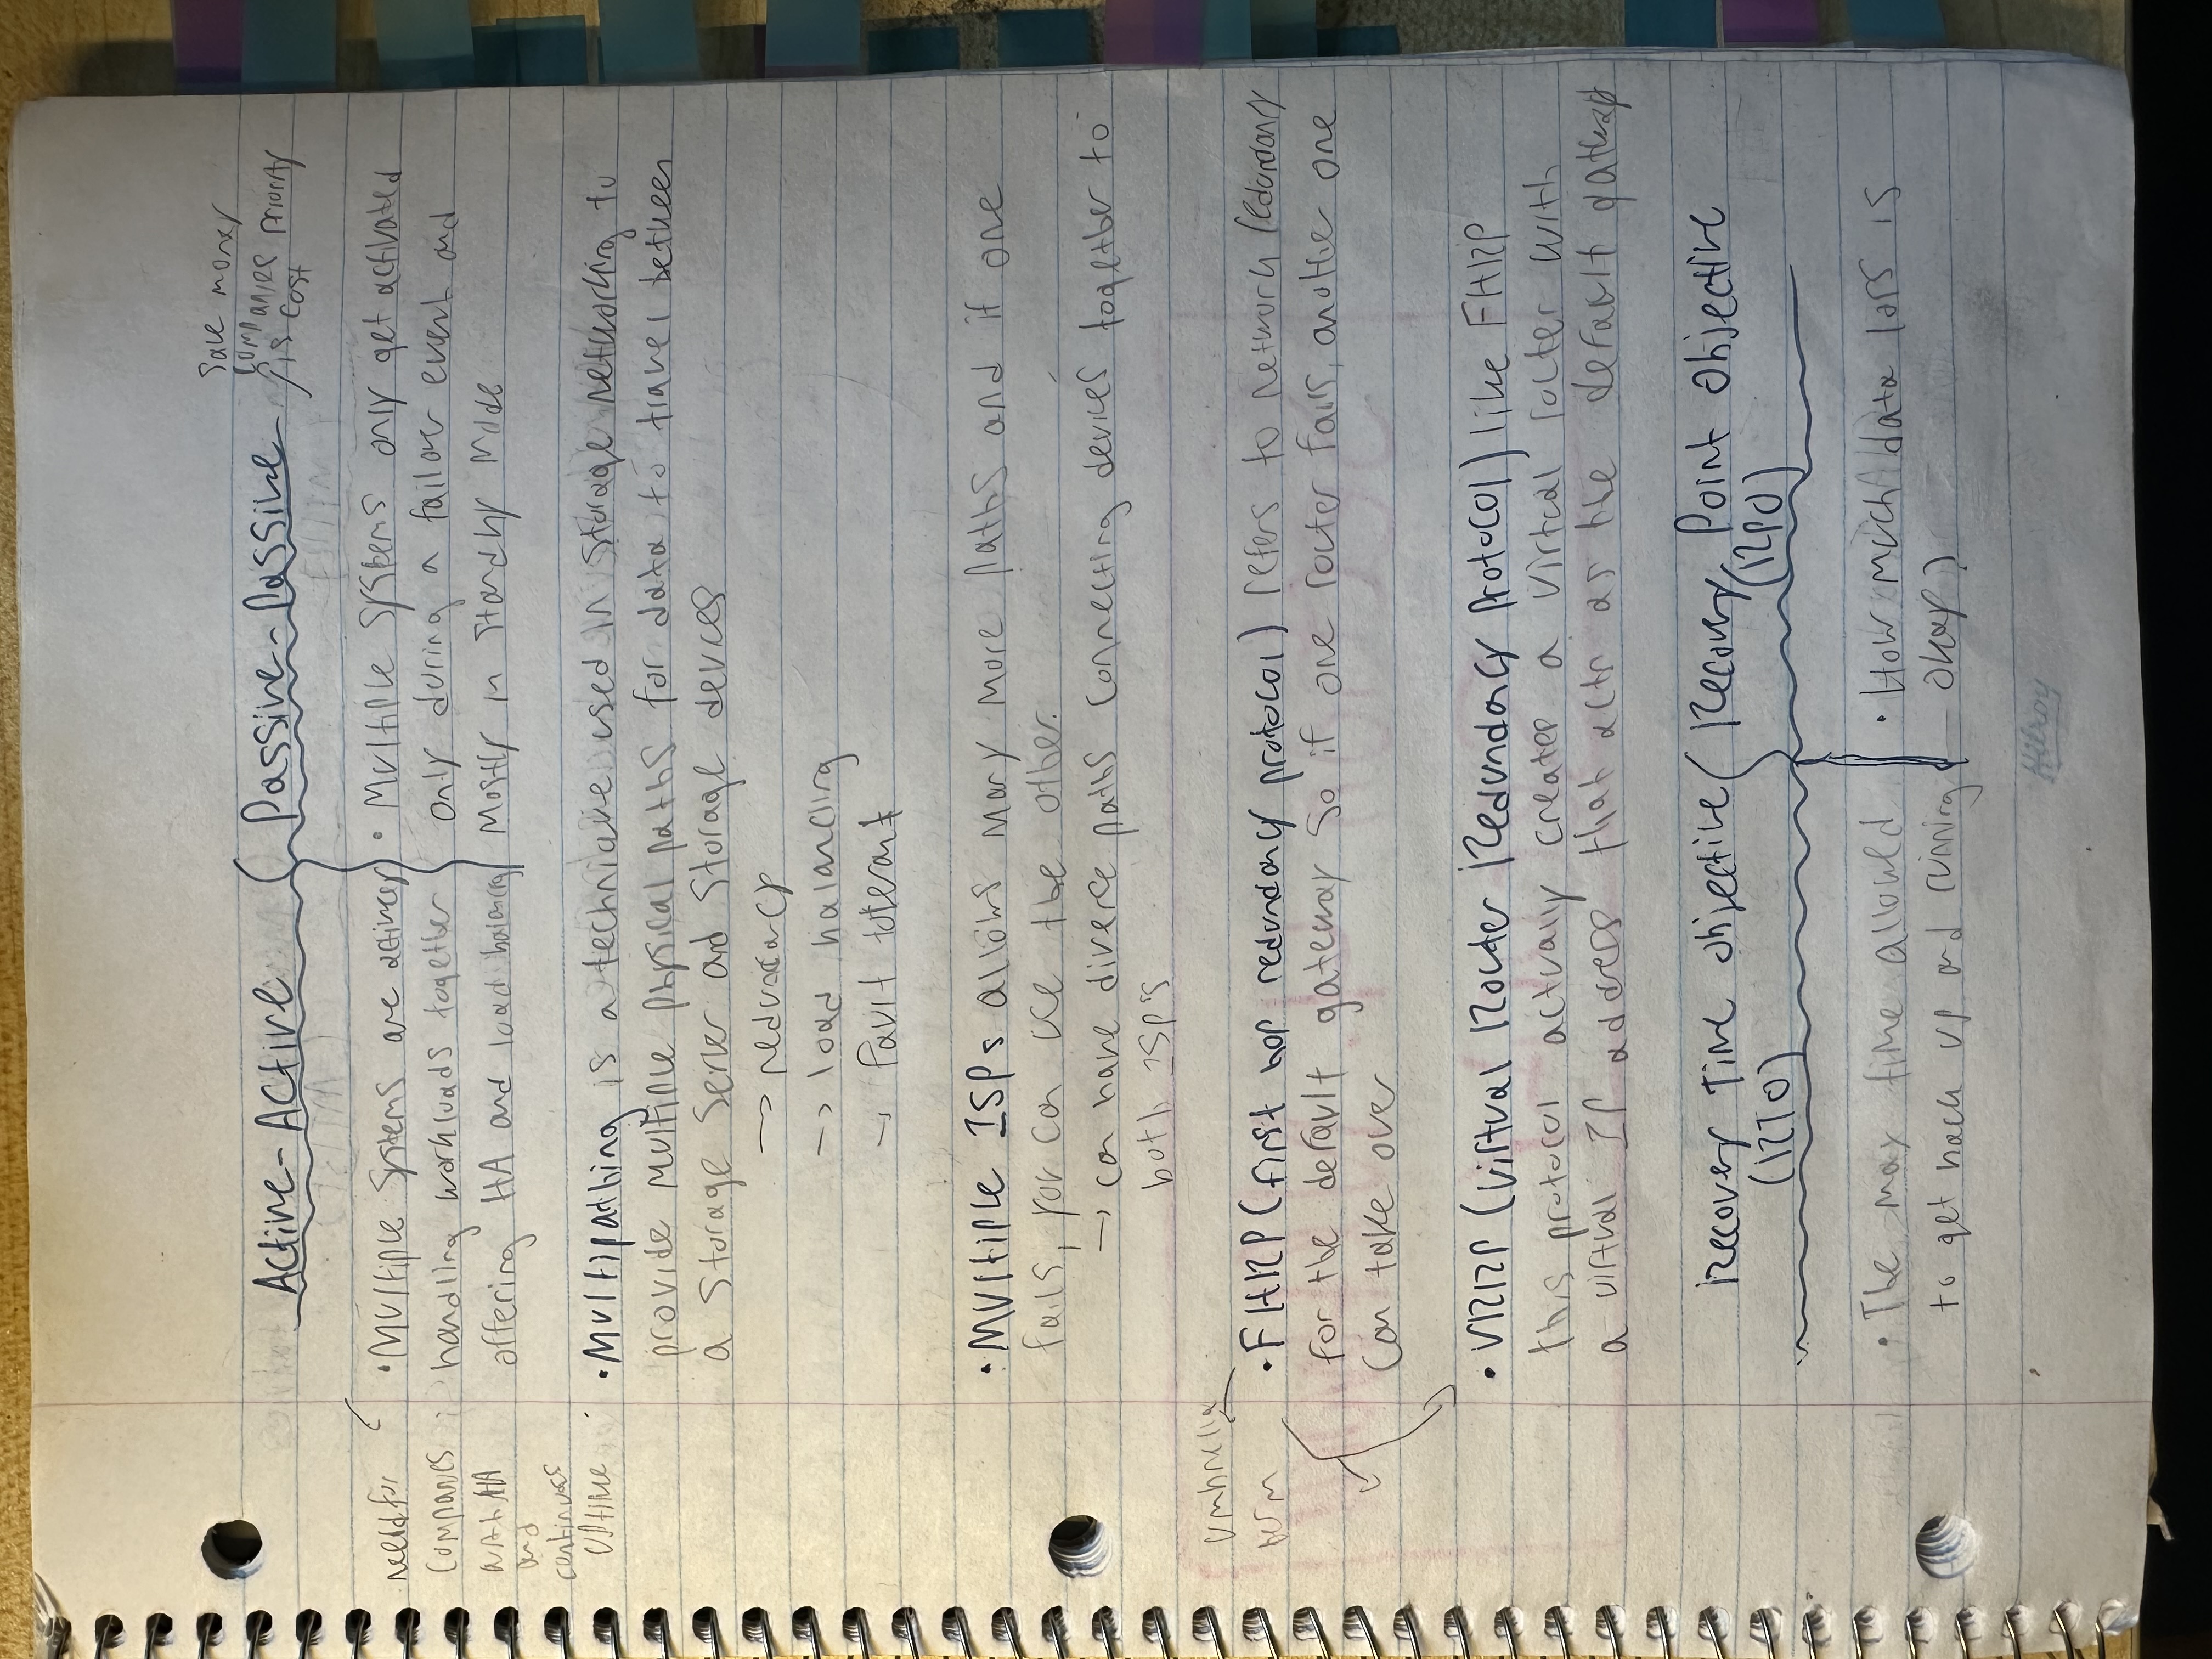 Save money
companies priority
is cost
Active-Active Passive-Passive
need for
companies
with HA
and
continuous
uptime
• Multiple systems are actively
handling workloads together
offering HA and load balancing
• Multiple systems only get activated
only during a failover event and
mostly in standby mode
• Multipathing is a technique used in storage networking to
provide multiple physical paths for data to travel between
a storage server and storage devices
→ redundancy
→ load balancing
→ fault tolerant
• Multiple ISPs allows many more paths and if one
fails, you can use the other.
→ can have diverse paths connecting devices together to
both ISP's
umbrella
term
• FHRP (first hop redundancy protocol) refers to network redundancy
for the default gateway so if one router fails, another one
can take over
• VRRP (Virtual Router Redundancy Protocol) like FHRP
this protocol actually creates a virtual router with
a virtual IP address that acts as the default gateway
Recovery Time Objective
(RTO)
Recovery Point Objective
(RPO)
• The max time allowed
to get back up and running
• How much data loss is
okay?
Hilroy